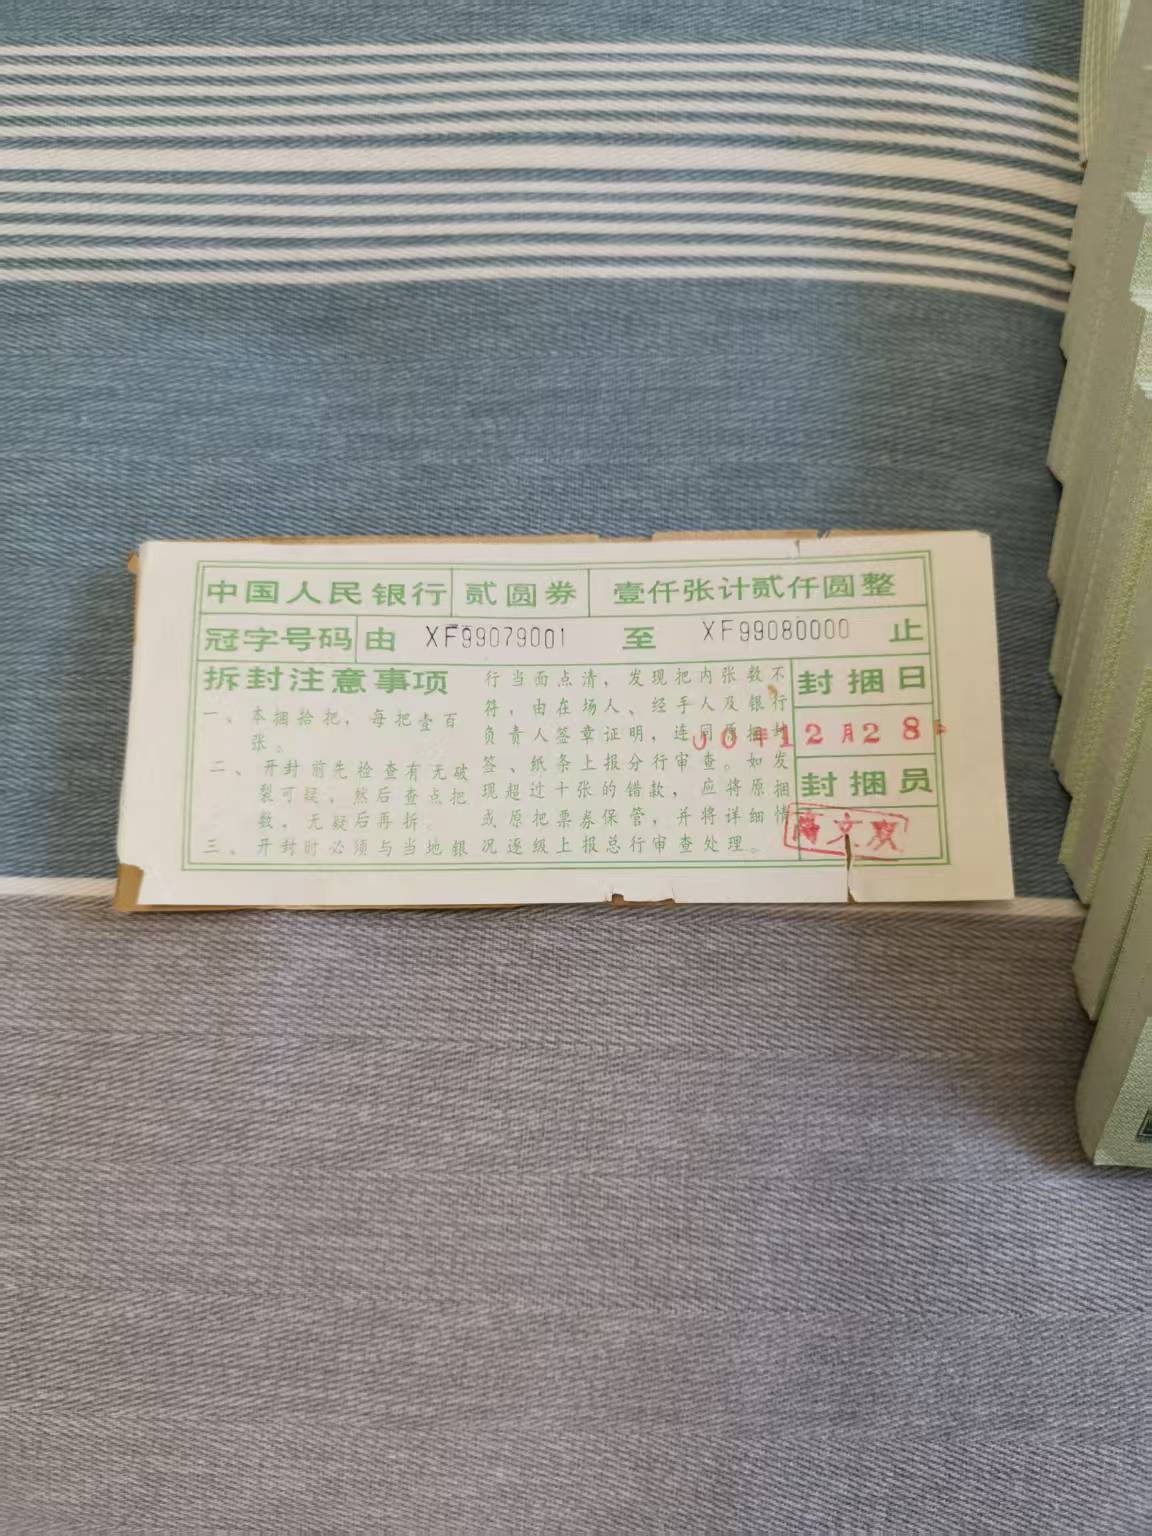 中国人民银行 贰圆券 壹仟张计贰仟圆整
冠字号码 由 XF99079001 至 XF99080000 止
拆封注意事项
一、本捆拾把，每把壹百
张。
二、开封前先检查有无破
裂可疑，然后查点把
数，无疑后再拆。
三、开封时必须与当地银
行当面点清，发现把内张数不
符，由在场人、经手人及银行
负责人签章证明，连同原捆封
签、纸条上报分行审查。如发
现超过十张的错款，应将原捆
或原把票券保管，并将详细情
况逐级上报总行审查处理。
封捆日
00年12月28
封捆员